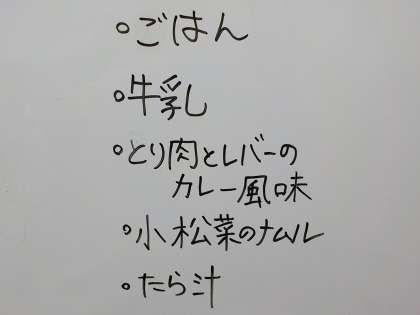 。ごはん
。牛乳
。とり肉とレバーの
カレー風味
。小松菜のナムル
。たら汁